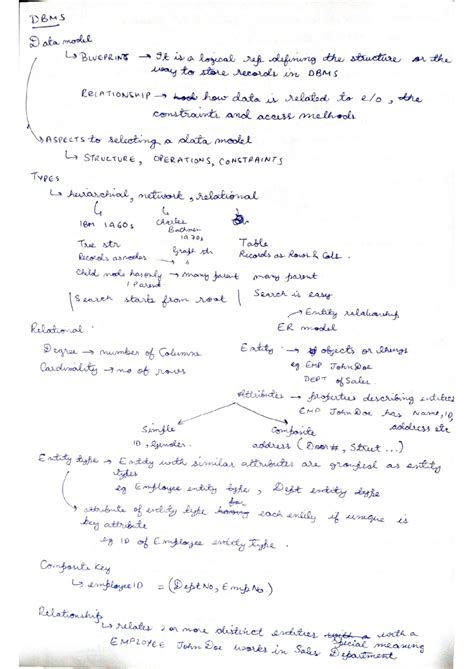 DBMS
Data model
↳ BLUEPRINT → It is a logical rep defining the structure or the
way to store records in DBMS
RELATIONSHIP → how data is related to e/o, the
constraints and access methods
↳ ASPECTS to selecting a data model
↳ STRUCTURE, OPERATIONS, CONSTRAINTS
TYPES
↳ heirarchial, network, relational
IBM 1960s Charles
Bachman
1970s
Tree str Graph str Table
Records as nodes Records as Rows & Cols.
Child node has only → many parent many parent
1 Parent
Search starts from root Search is easy
→ Entity relationship
ER model
Relational
Degree → number of Columns
Cardinality → no of rows
Entity → objects or things
eg EMP John Doe
DEPT of Sales.
Attributes → properties describing entities
EMP John Doe has Name, ID,
address etc
Simple Composite
ID, Gender. address (Door#, Street ...)
Entity type → Entity with similar attributes are grouped as entity
types
eg Employee entity type, Dept entity type
for
↳ attribute of entity type having each entity if unique is
key attribute
eg ID of Employee entity Type.
Composite Key
↳ employeeID = (DeptNo, EmpNo.)
Relationship
↳ relates 2 or more distinct entities with a with a
special meaning
EMPLOYEE John Doe works in Sales Department